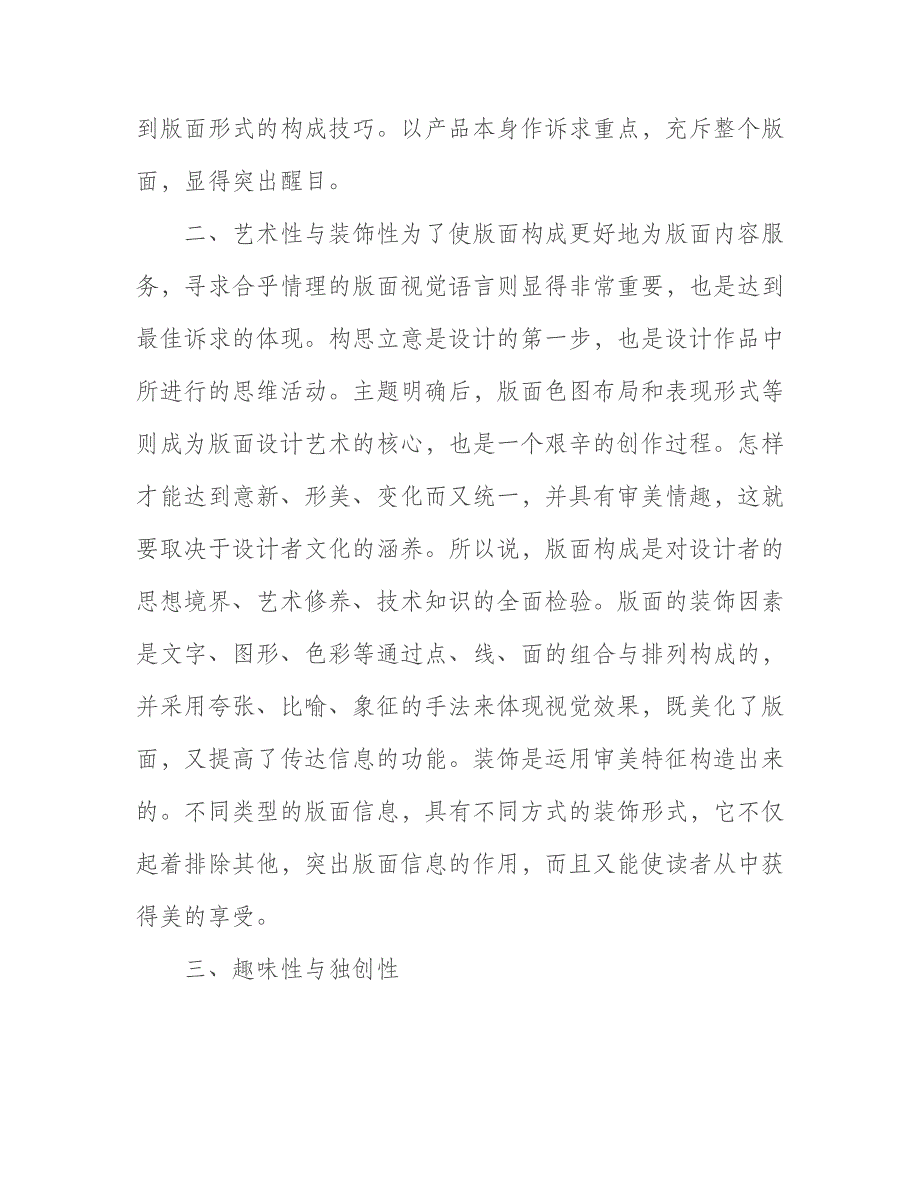 到版面形式的构成技巧。以产品本身作诉求重点，充斥整个版
面，显得突出醒目。
二、艺术性与装饰性为了使版面构成更好地为版面内容服
务，寻求合乎情理的版面视觉语言则显得非常重要，也是达到
最佳诉求的体现。构思立意是设计的第一步，也是设计作品中
所进行的思维活动。主题明确后，版面色图布局和表现形式等
则成为版面设计艺术的核心，也是一个艰辛的创作过程。怎样
才能达到意新、形美、变化而又统一，并具有审美情趣，这就
要取决于设计者文化的涵养。所以说，版面构成是对设计者的
思想境界、艺术修养、技术知识的全面检验。版面的装饰因素
是文字、图形、色彩等通过点、线、面的组合与排列构成的，
并采用夸张、比喻、象征的手法来体现视觉效果，既美化了版
面，又提高了传达信息的功能。装饰是运用审美特征构造出来
的。不同类型的版面信息，具有不同方式的装饰形式，它不仅
起着排除其他，突出版面信息的作用，而且又能使读者从中获
得美的享受。
三、趣味性与独创性